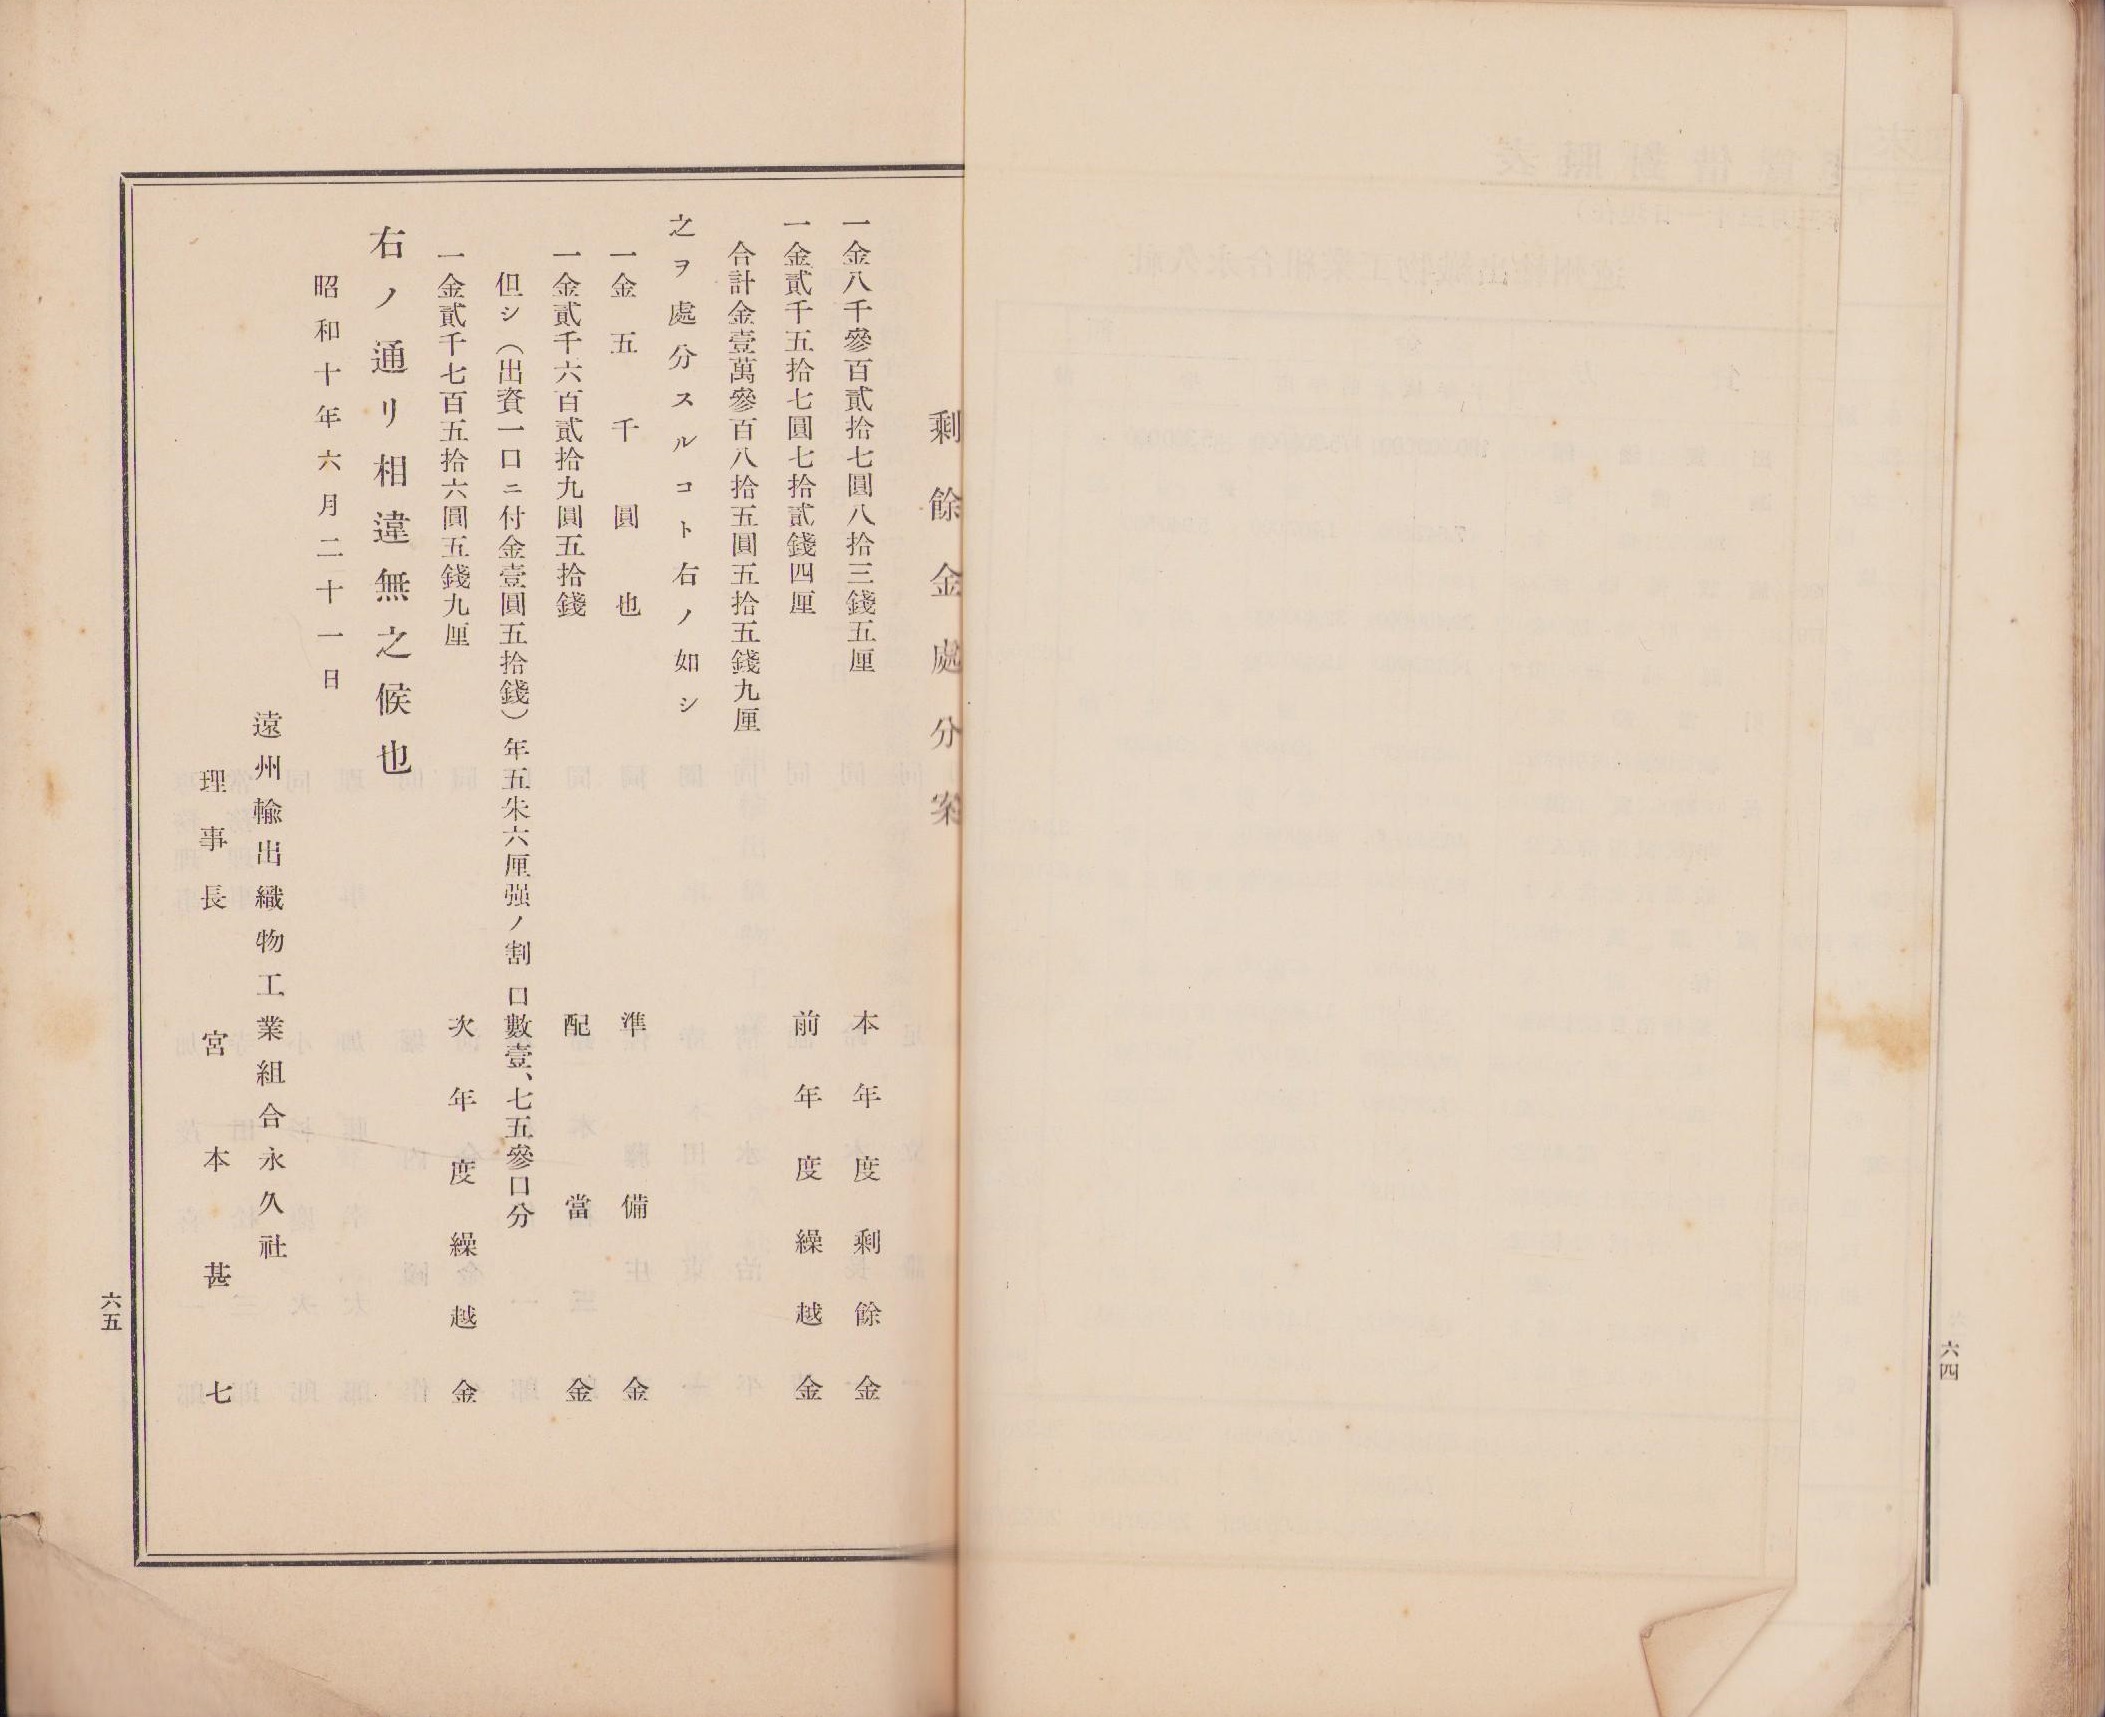 剩餘金處分案
一金八千參百貳拾七圓八拾三錢五厘 本年度剩餘金
一金貳千五拾七圓七拾貳錢四厘 前年度繰越金
合計金壹萬參百八拾五圓五拾五錢九厘
之ヲ處分スルコト右ノ如シ
一金五千圓也 準備金
一金貳千六百貳拾九圓五拾錢 配當金
但シ（出資一口ニ付金壹圓五拾錢）年五朱六厘强ノ割 口數壹、七五參口分
一金貳千七百五拾六圓五錢九厘 次年度繰越金
右ノ通リ相違無之候也
昭和十年六月二十一日
遠州輸出織物工業組合永久社
理事長 宮本甚七
六五
六四